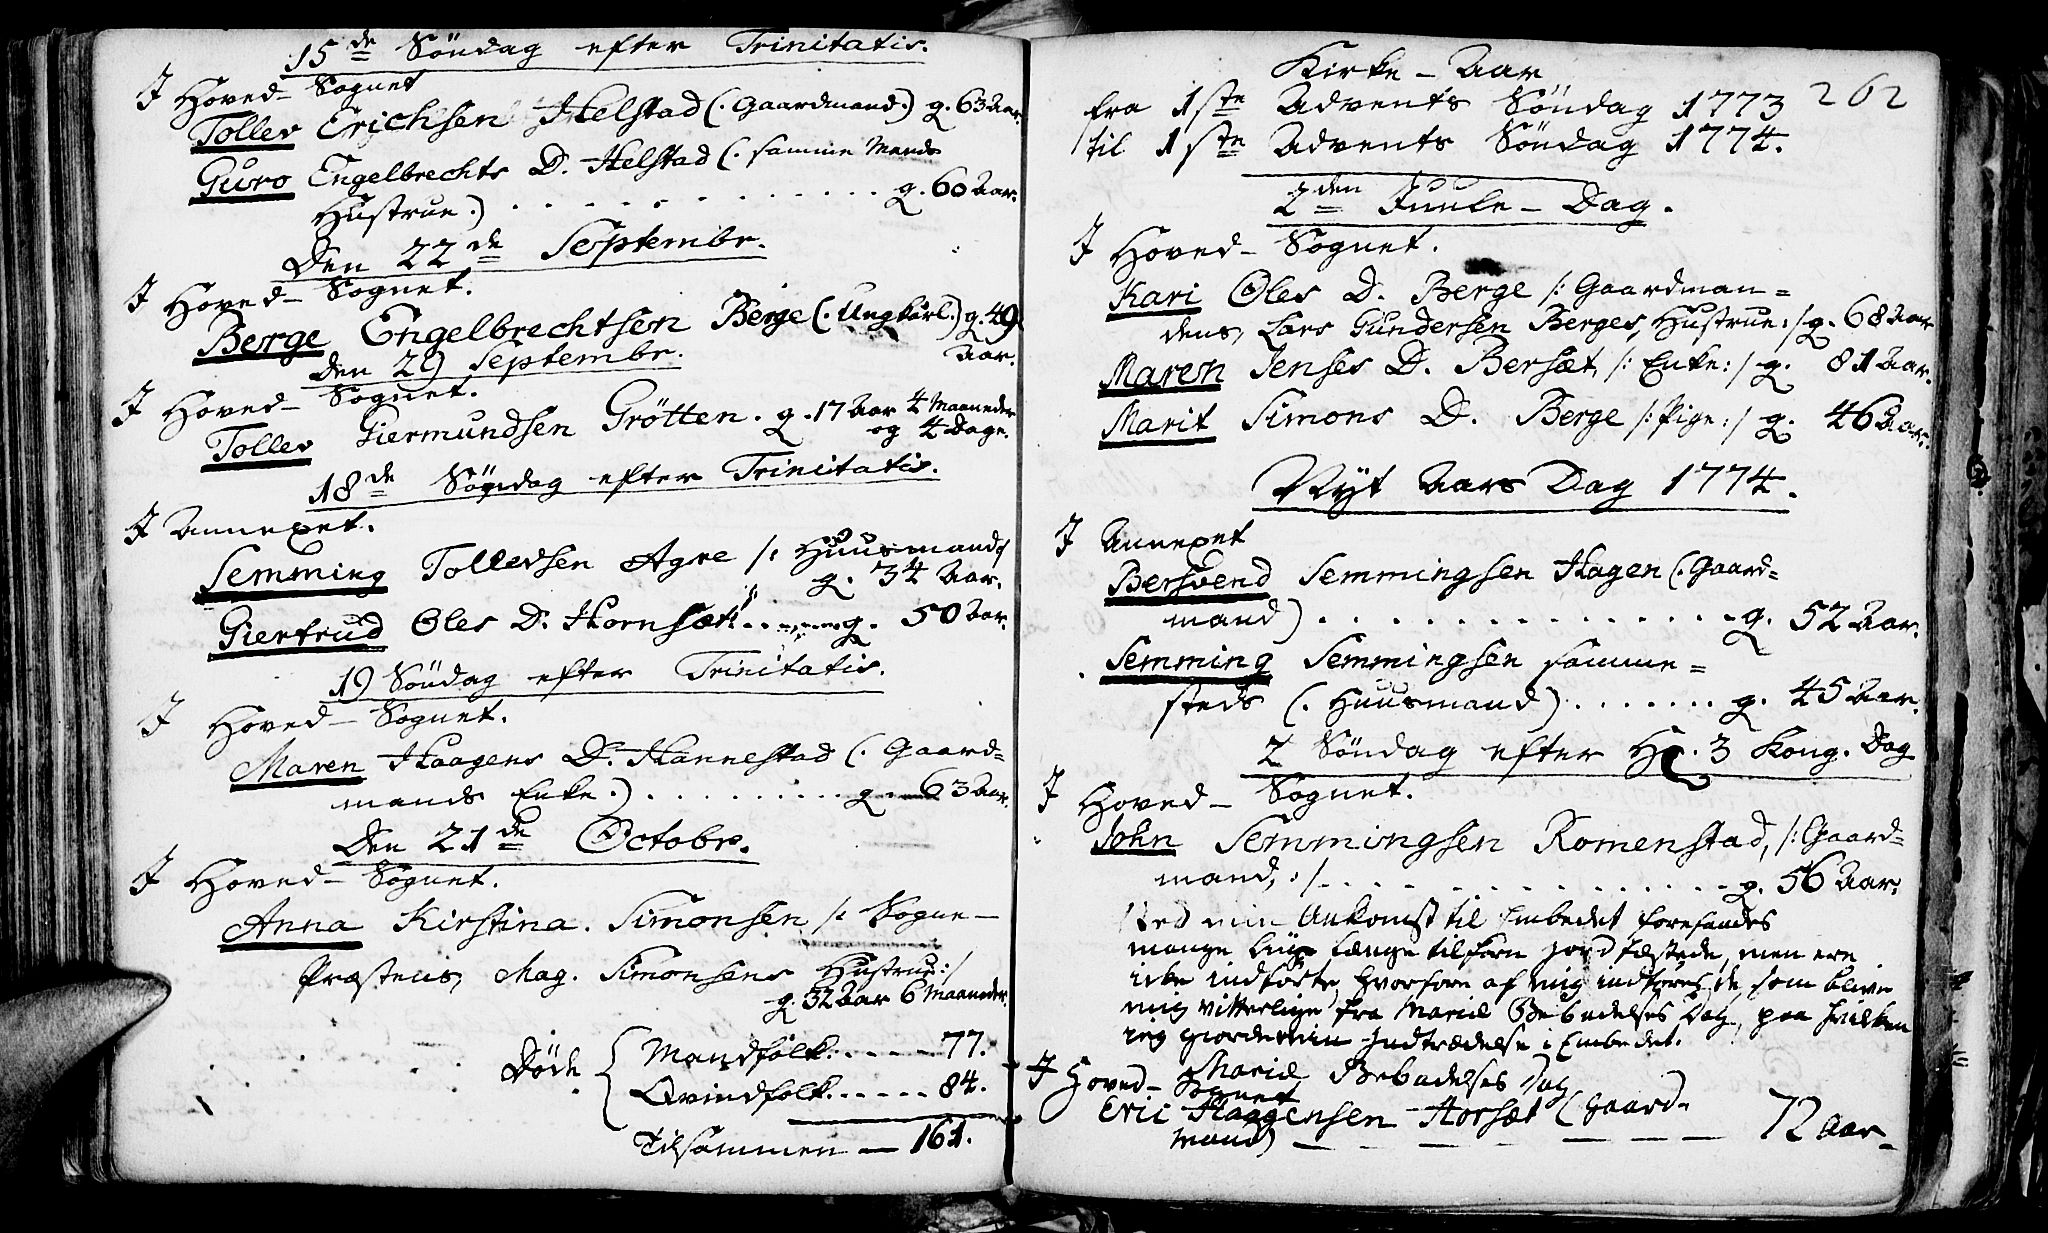 15de Söndag efter Trinitatis.
I Hoved-Sognet
Tollev Erichsen Helstad (. Gaardmand.) g. 63 Aar.
Guro Engelbrechts D. Helstad (. samme Mands
Hustrue.) . . . . . . . . . . g. 60 Aar.
Den 22de Septembr.
I Hoved-Sognet.
Berge Engelbrechtsen Berge (. Ungkarl.) g. 49
Aar.
Den 29 Septembr.
I Hoved-Sognet.
Tollev Giermundsen Grötten. g. 17 Aar 4 Maaneder
og 4 Dage.
18de Söndag efter Trinitatis.
I Annexet.
Semming Tollevsen Agre /: Huusmand
g. 34 Aar.
Giertrud Oles D. Hornsæt . . . . g. 50 Aar.
19 Söndag efter Trinitatis.
I Hoved-Sognet.
Maren Haagens D. Hannestad (. Gaard=
mands Enke.) . . . . . . . . . g. 63 Aar.
Den 21de Octobr.
I Hoved-Sognet.
Anna Kirstina. Simonsen /: Sogne-
Præstens, Mag. Simonsens Hustrue :/
g. 32 Aar 6 Maaneder.
Döde { Mandfolk. . . . . . 77.
Qvindfolk. . . . . . 84.
Tilsammen — 161.
Kirke-Aar
fra 1ste Advents Söndag 1773 262
til 1ste Advents Söndag 1774.
2den Juule-Dag.
I Hoved-Sognet.
Kari Oles D. Berge /: Gaardman=
dens, Lars Gundersen Berges, Hustrue :/ g. 68 Aar
Maren Jenses D. Bersæt, /: Enke :/ g. 81 Aar.
Marit Simons D. Berge /: Pige :/ g. 46 Aar.
Nyt Aars Dag 1774.
I Annexet
Bersvend Semmingsen Hagen (. Gaard=
mand) . . . . . . . . . . . . . . g. 52 Aar.
Semming Semmingsen samme=
steds (. Huusmand) . . . . . . . g. 45 Aar.
2 Söndag efter H. 3 Kong. Dag
I Hoved-Sognet.
John Semmingsen Romenstad, /: Gaard=
mand, :/ . . . . . . . . . . . . . . g. 56 Aar.
Ved min Ankomst til Embedet forefandes
mange Liig længe tilforn jordfæstede, men ere
icke indförte, hvorfore af mig indföres de, som blive
mig vitterlige fra Mariæ Bebudelses Dag, paa hvilken
jeg giorde min Indtrædelse i Embedet.
Mariæ Bebudelses Dag
I Hoved-Sognet
Eric Haagensen Horsæt (Gaard-
mand) — — — — — — 72 Aar-